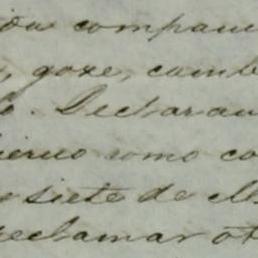 ida compañ
, goze, camb
o. Declaran
bierno como co
siete de M
reclamar ot